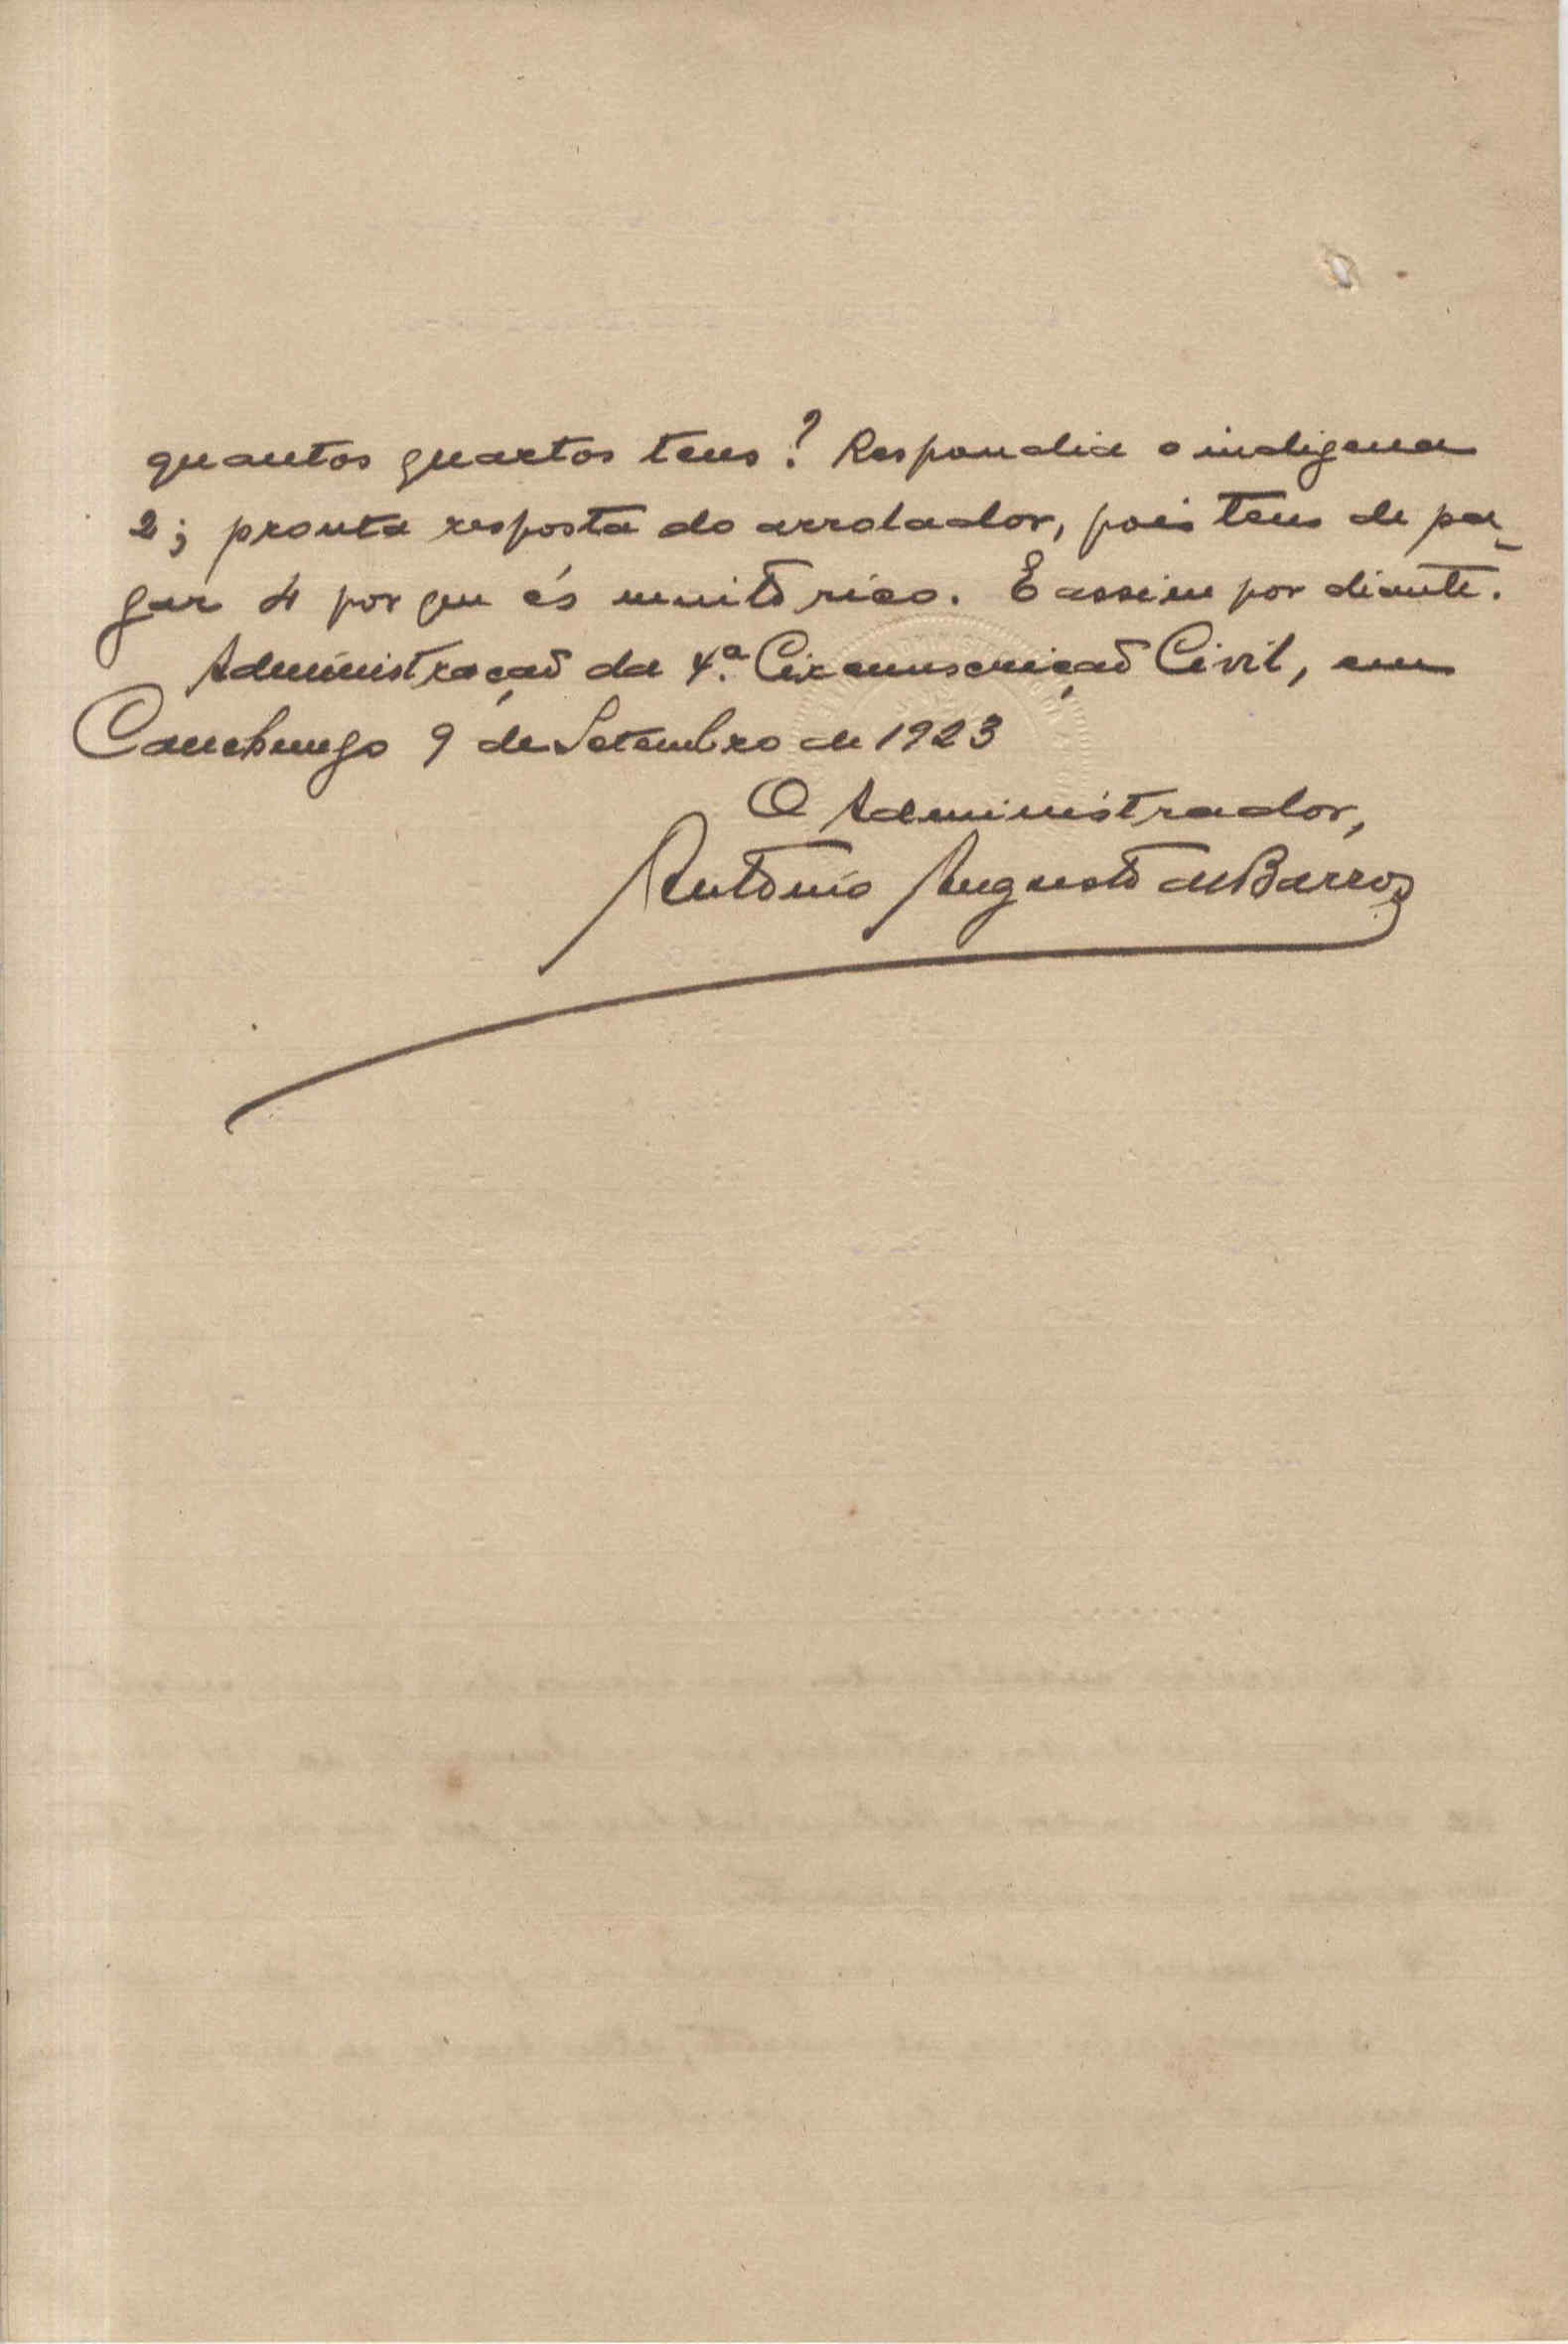 quantos quartos tens? Respondia o indigena
2; pronta resposta do arrolador, pois tens de pa-
gar 4 por que és muito rico. E assim por diante.
Administração da 4.ª Circunscrição Civil, em
Canchungo 9 de Setembro de 1923
O Administrador,
António Augusto de Barros